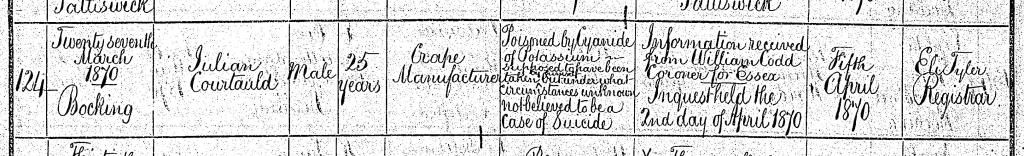 Pattiswick
Pattiswick
124
Twenty seventh
March
1870
Bocking
Julian
Courtauld
Male
25
years
Crape
Manufacturer
Poisoned by Cyanide
of Potassium
supposed to have been
taken but under what
circumstances unknown
not believed to be a
Case of Suicide
Information received
from William Codd
Coroner for Essex
Inquest held the
2nd day of April 1870
Fifth
April
1870
Eli Tyler
Registrar